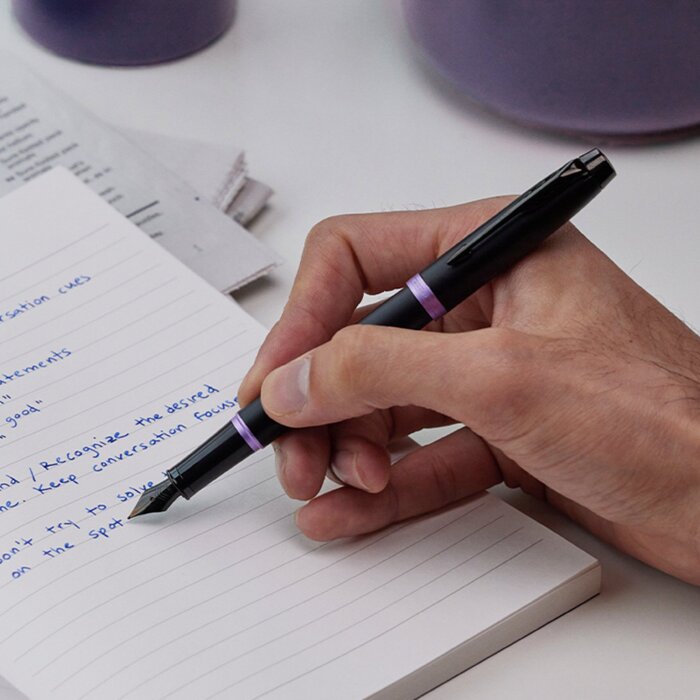 rsation cues
atements
"
"good"
nd / Recognize the desired
ne. Keep conversation focus
on't try to solve
on the spot